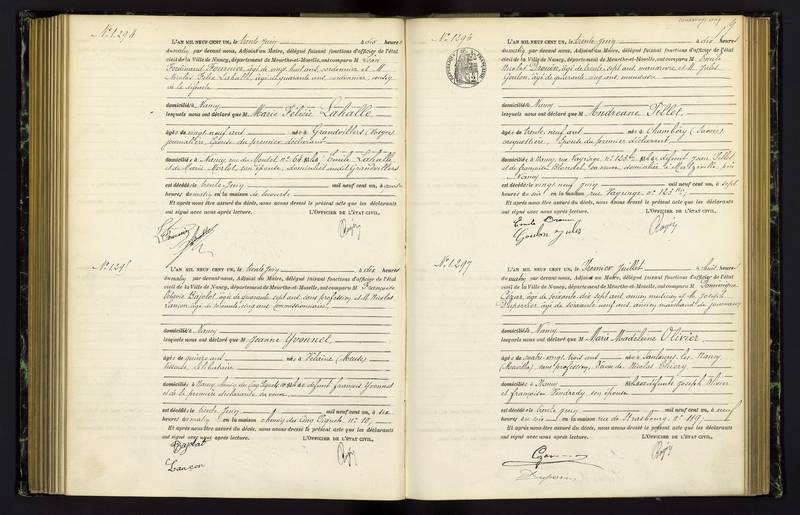 N° 1294
L'AN MIL NEUF CENT UN, le trente juin à dix heures
du matin, par devant nous, Adjoint au Maire, délégué faisant fonctions d'officier de l'état
civil de la Ville de Nancy, département de Meurthe-et-Moselle, ont comparu M Léon
Ferdinand Fournier, âgé de vingt huit ans, cordonnier et M
Nicolas Félix Lahalle, âgé de quarante ans, cordonnier, cousin
de la défunte
domiciliés à Nancy
lesquels nous ont déclaré que M Marie Félicie Lahalle
âgée de vingt neuf ans née à Grandvillers (Vosges)
journalière, épouse du premier déclarant
domiciliée à Nancy rue du Montet n° 66 Emile Lahalle
et de Marie Morlot, son épouse, domiciliés audit Grandvillers
est décédée le trente juin mil neuf cent un, à quatre
heures du matin en la maison
Et après nous être assuré du décès, nous avons dressé le présent acte que les déclarants
ont signé avec nous après lecture. L'OFFICIER DE L'ÉTAT CIVIL,
N° 1295
L'AN MIL NEUF CENT UN, le trente juin à dix heures
du matin, par devant nous, Adjoint au Maire, délégué faisant fonctions d'officier de l'état
civil de la Ville de Nancy, département de Meurthe-et-Moselle, ont comparu M Françoise
Bajolot, âgée de quarante sept ans, sans profession et M Nicolas
Lançon, âgé de soixante cinq ans, commissionnaire
domiciliés à Nancy
lesquels nous ont déclaré que M Jeanne Yvonnet
âgée de quinze ans née à Velaine (Meuse)
célibataire
domiciliée à Nancy, chemin des Cinq Piquets n° 10 de défunt François Yvonnet
et de la première déclarante, sa veuve
est décédée le trente juin mil neuf cent un, à dix
heures du matin en la maison chemin des Cinq Piquets, n° 10,
Et après nous être assuré du décès, nous avons dressé le présent acte que les déclarants
ont signé avec nous après lecture. L'OFFICIER DE L'ÉTAT CIVIL,
Bajolot
Lançon
N° 1296
L'AN MIL NEUF CENT UN, le trente juin à dix heures
du matin, par devant nous, Adjoint au Maire, délégué faisant fonctions d'officier de l'état
civil de la Ville de Nancy, département de Meurthe-et-Moselle, ont comparu M Emile
Nicolas âgé de trente sept ans, manœuvre et M Jules
Goulon, âgé de quarante cinq ans, manœuvre
domiciliés à Nancy
lesquels nous ont déclaré que M Andréane Pillet
âgée de trente neuf ans née à Chambéry (Savoie)
casquettière, épouse du premier déclarant
domiciliée à Nancy, rue n° 123 bis de défunt Jean Pillet
et de Françoise Blondet, sa veuve, domiciliée à Maxéville, près
Nancy
est décédée le vingt neuf juin mil neuf cent un, à sept
heures du soir en la maison rue n° 123 bis
Et après nous être assuré du décès, nous avons dressé le présent acte que les déclarants
ont signé avec nous après lecture. L'OFFICIER DE L'ÉTAT CIVIL,
Emile
Goulon Jules
N° 1297
L'AN MIL NEUF CENT UN, le Premier Juillet à huit heures
du matin, par devant nous, Adjoint au Maire, délégué faisant fonctions d'officier de l'état
civil de la Ville de Nancy, département de Meurthe-et-Moselle, ont comparu M Dominique
âgé de soixante dix sept ans, ancien et M Joseph
Duperrier, âgé de soixante neuf ans, ancien marchand de journaux
domiciliés à Nancy
lesquels nous ont déclaré que M Marie Madeleine Olivier
âgée de quatre vingt trois ans née à Saulxures les Nancy
(Moselle), sans profession, Veuve de Nicolas Thiéry
domiciliée à Nancy de défunts Joseph Olivier
et Françoise son épouse
est décédée le trente juin mil neuf cent un, à neuf
heures du soir en la maison rue de Strasbourg, n° 119,
Et après nous être assuré du décès, nous avons dressé le présent acte que les déclarants
ont signé avec nous après lecture. L'OFFICIER DE L'ÉTAT CIVIL,